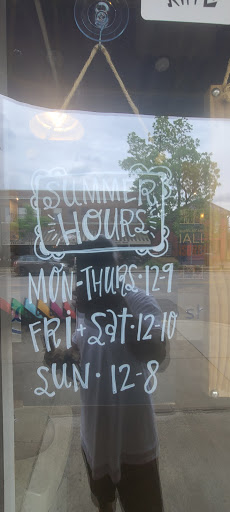 SUMMER
HOURS
MON-THURS·12-9
FRI + Sat·12-10
SUN·12-8